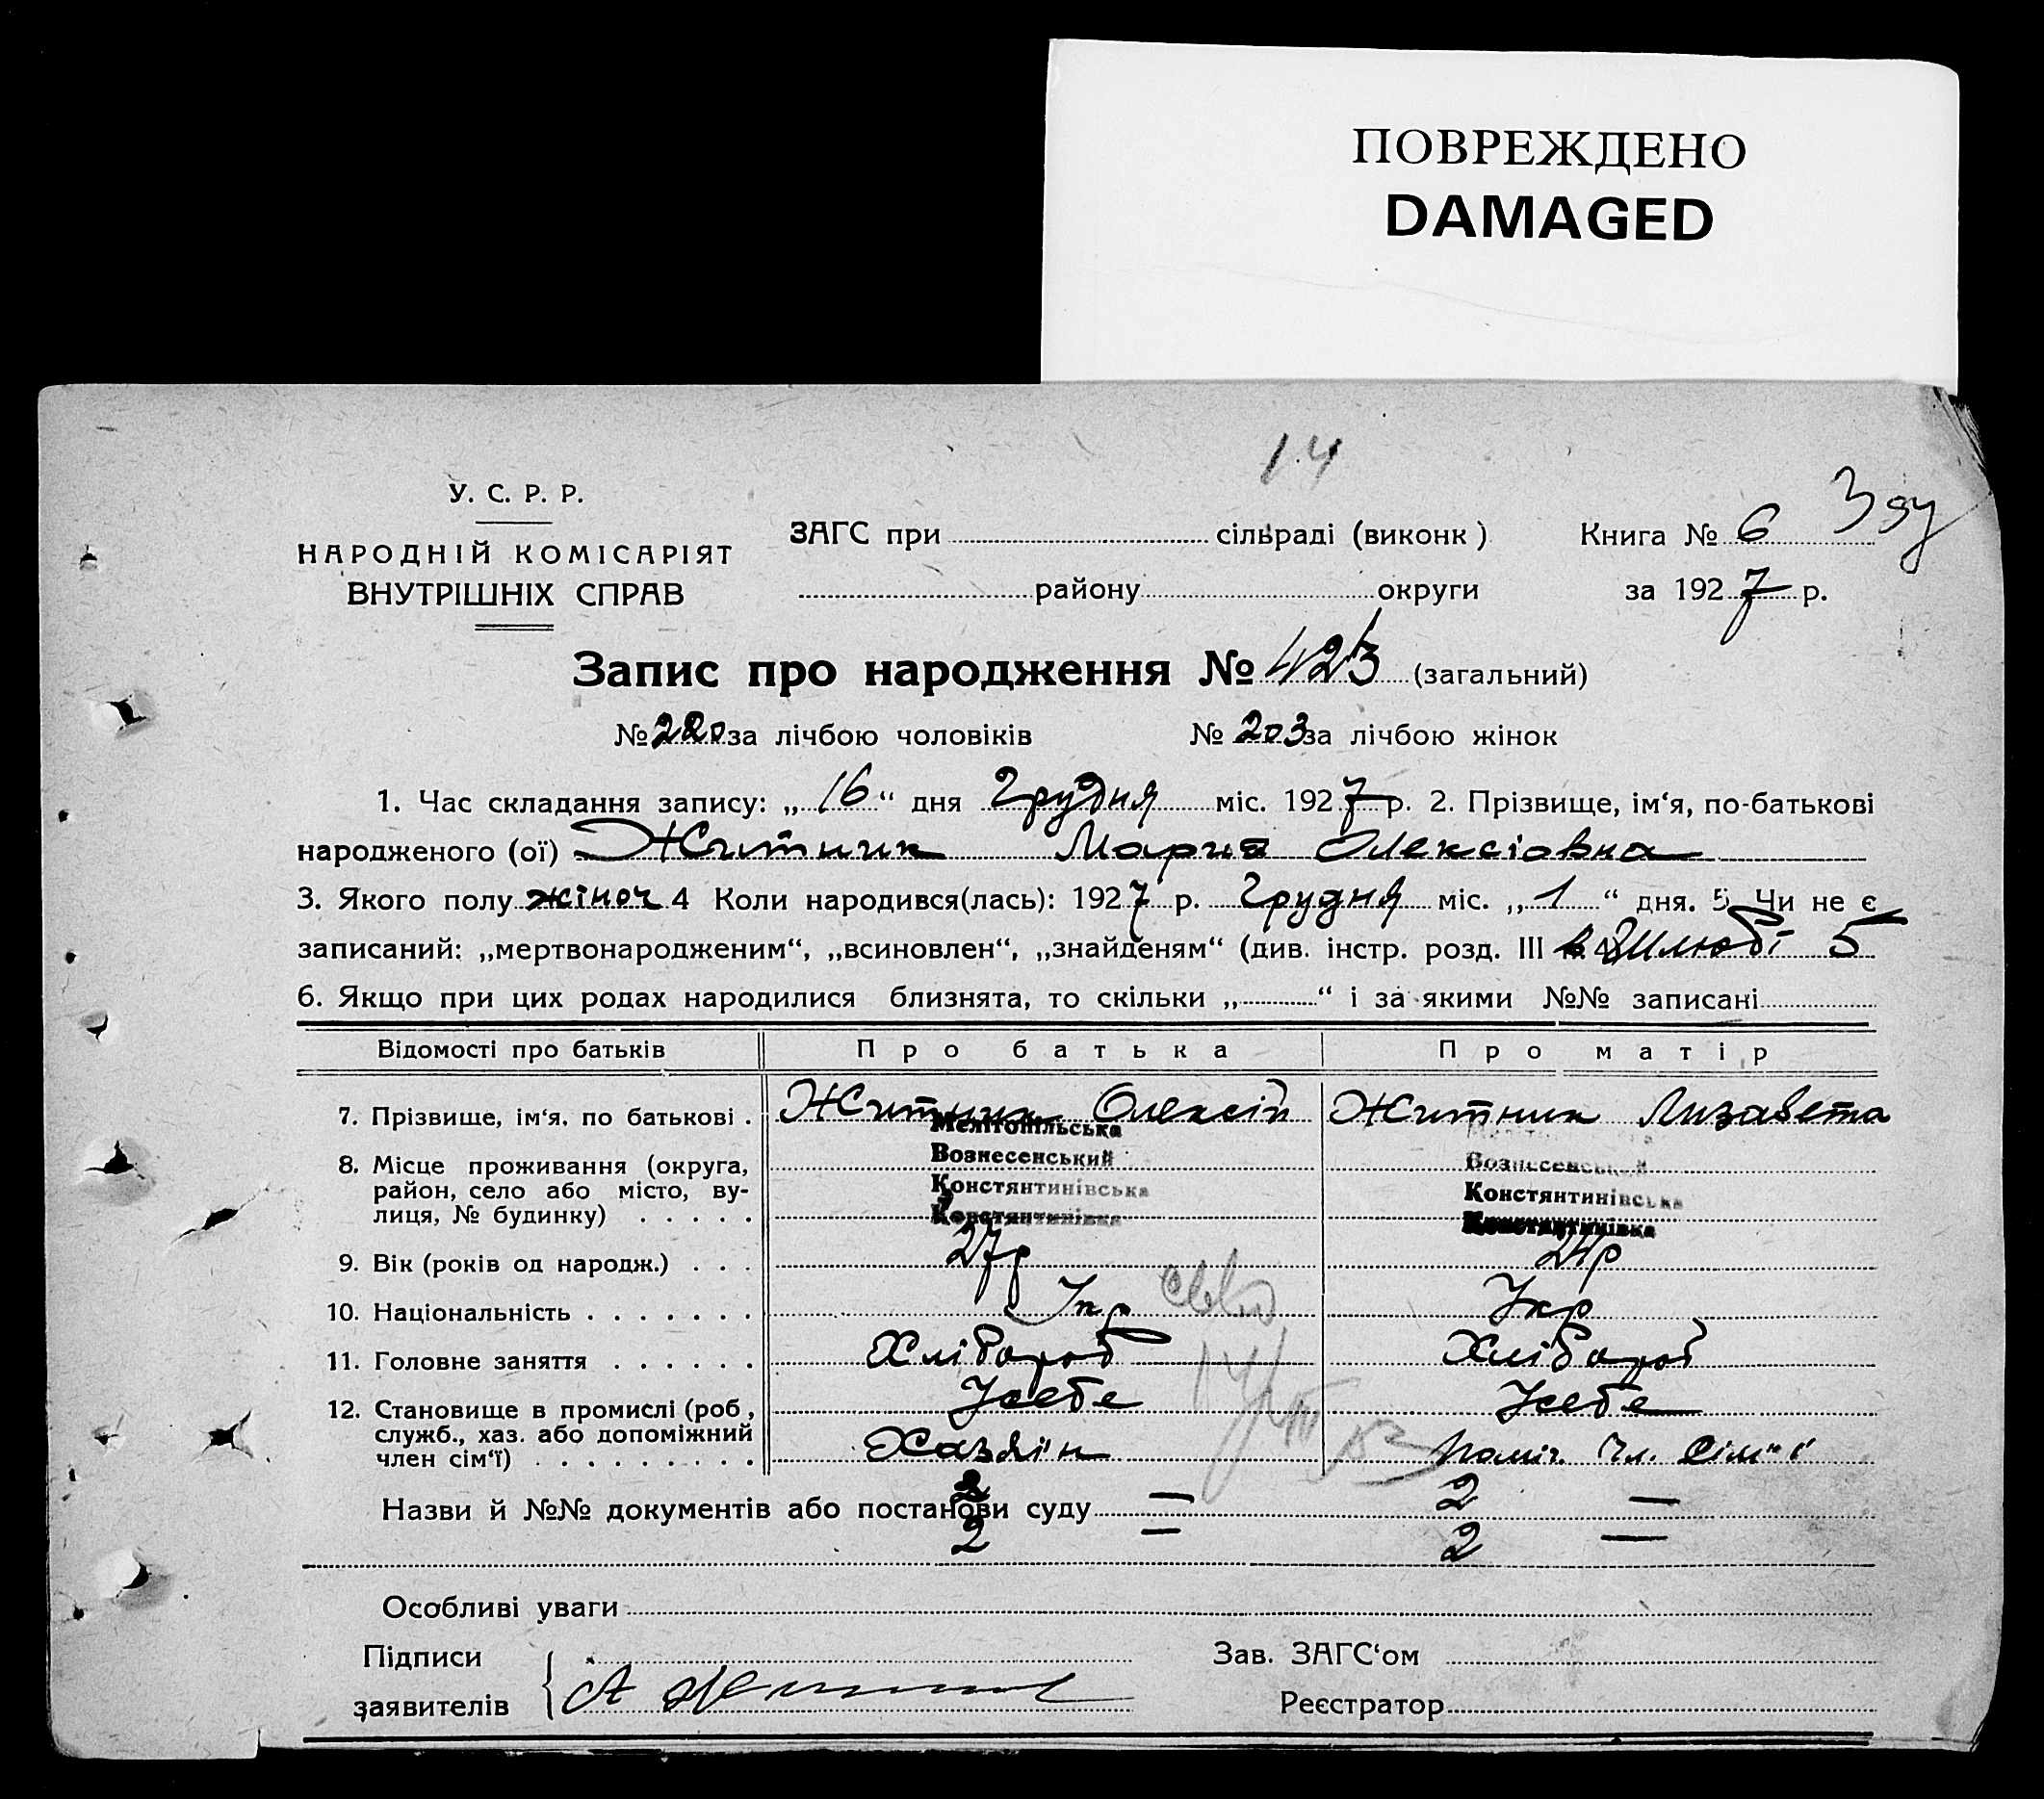 ПОВРЕЖДЕНО
DAMAGED
14
У. С. Р. Р.
НАРОДНІЙ КОМІСАРІЯТ
ВНУТРІШНІХ СПРАВ
ЗАГС при сільраді (виконк)
Книга № 6
району округи
за 1927 р.
Запис про народження № 423 (загальний)
№ 220 за лічбою чоловіків № 203 за лічбою жінок
1. Час складання запису: „16“ дня Грудня міс. 1927 р. 2. Прізвище, ім‘я, по-батькові
народженого (ої) Житник Мария Олексіовна
3. Якого полу жіноч 4 Коли народився(лась): 1927 р. Грудня міс. „1“ дня. 5 Чи не є
записаний: „мертвонародженим“, „всиновлен“, „знайденям“ (див. інстр. розд. III Шлюбі 5
6. Якщо при цих родах народилися близнята, то скільки „ “ і за якими №№ записані
Відомості про батьків Про батька Про матір
7. Прізвище, ім‘я, по батькові . Житник Олексій Житник Лизавета
Мелітопільська
8. Місце проживання (округа, Вознесенський Вознесенський
район, село або місто, ву- Констянтинівська Констянтинівська
лиця, № будинку) . . . . . Констянтинівка Констянтинівка
9. Вік (років од народж.) . . . 27р 24р
10. Національність . . . . . . . Укр Укр
11. Головне заняття . . . . . . Хлібороб Хлібороб
12. Становище в промислі (роб, Усебе Усебе
служб., хаз. або допоміжний
член сім‘ї) . . . . . . . . . Хазяїн поміч. чл. сім"ї
2 — 2 —
Назви й №№ документів або постанови суду
2 — 2 —
Особливі уваги
Підписи
заявителів
А Житник
Зав. ЗАГС‘ом
Реєстратор